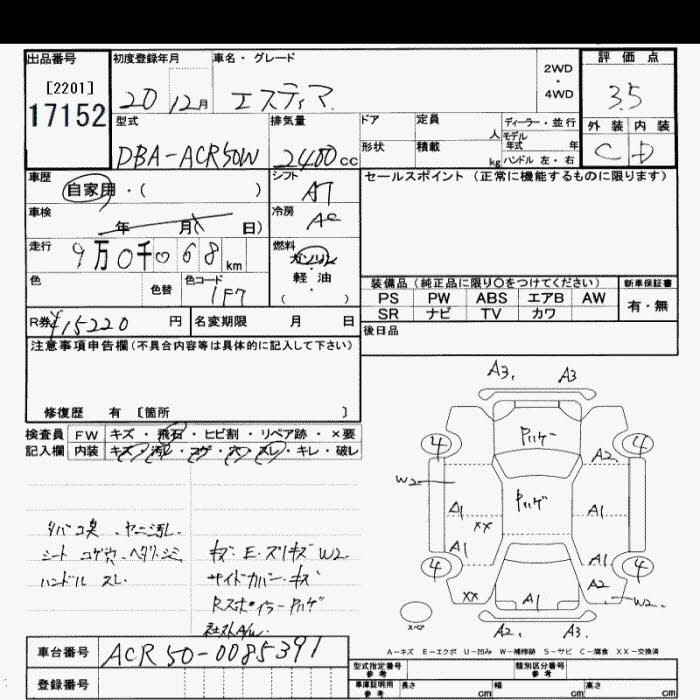 出品番号 初度登録年月 車名・グレード 2WD・4WD 評価点
[2201]
17152
20 12月 エスティマ 3.5
型式 排気量 ドア 定員 人 ディーラー・並行 外装 内装
モデル年式 年
DBA-ACR50W 2400cc 形状 積載 kg ハンドル 左・右 C D
車歴 自家用・( ) シフト AT セールスポイント (正常に機能するものに限ります)
車検 年 月 日) 冷房 AC
走行 9万0千068km 燃料 ガソリン・軽油 ( )
色 色替 色コード 1F7
装備品 (純正品に限り〇をつけてください) 新車保証書
PS PW ABS エアB AW 有・無
SR ナビ TV カワ
R券 ¥15220円 名変期限 月 日 後日品
注意事項申告欄(不具合内容等は具体的に記入して下さい)
修復歴 有 [箇所 ]
検査員 FW キズ・飛石・ヒビ割・リペア跡・×要
記入欄 内装 キズ・汚レ・コゲ・穴・スレ・キレ・破レ
A3. A3
4 Pハゲ 4
A2
W2 Pハゲ
A1 A1
XX
A1 A1
4 4
A2
XX A1 W2
スペア
A2. A3.
タバコ臭・ヤニ汚レ
シート コゲ穴・ヘタリ・シミ キズ・E・スリキズ W2
ハンドル スレ サイドカバー・キズ
Rスポイラー Pハゲ
社外A/W
A-キズ E-エクボ U-凹み W-補修跡 S-サビ C-腐食 XX-交換済
車台番号 ACR50-0085391
登録番号
型式指定番号 参考 類別区分番号 参考
車庫証明用 参考 長さ cm 幅 cm 高さ cm